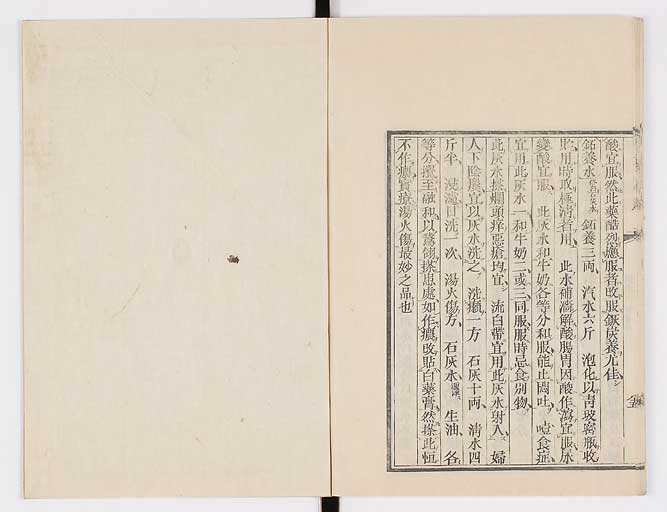 酸宜服然此藥酷烈繼服者改服鐵炭養尤佳
鈣養水 鈣養三兩 汽水六斤 泡化以靑玻瓶收
貯用時取極淸者用 此水補瀉解酸腸胃因酸作瀉宜服尿
變酸宜服 此灰水和牛奶各等分和服能止悶吐 噎食症
宜用此灰水一和牛奶二或三同服服時忌食別物
此灰水搽爛頭痒惡瘡均宜 流白帶宜用此灰水射入 婦
人下陰癢宜以灰水洗之 洗癩一方 石灰十兩 淸水四
斤半 每日洗一次 湯火傷方 石灰水 生油 各
等分攪至融和以鵞翎搽患處如作癏改貼白藥膏然搽此恒
不作癏實療湯火傷最妙之品也